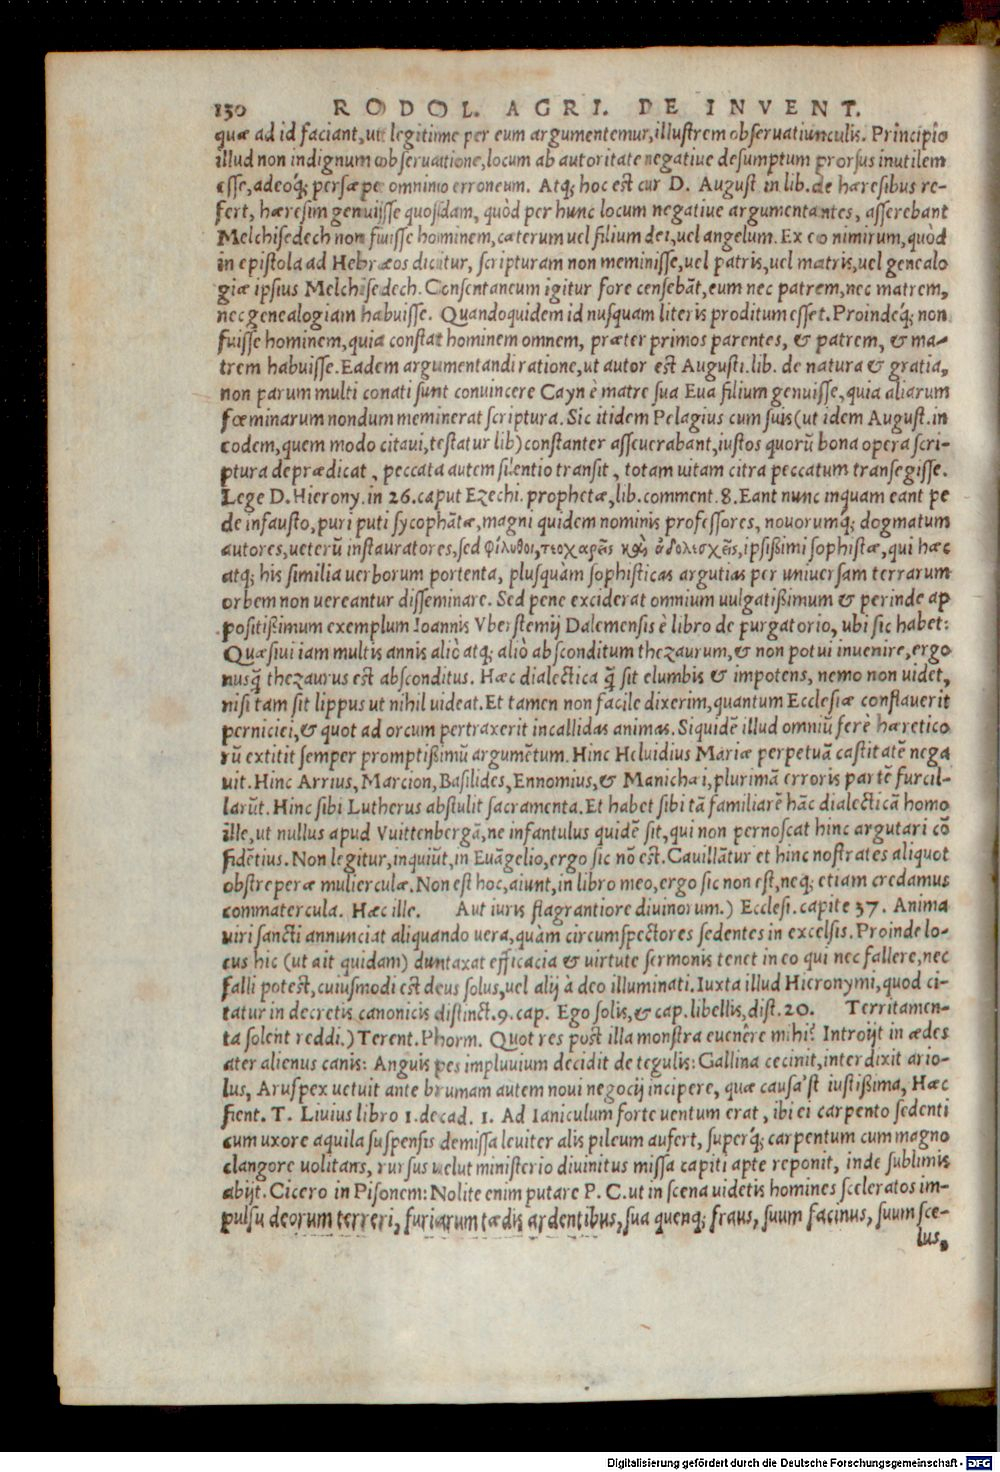 130 RODOL. AGRI. DE INVENT.
quæ ad id faciant, ut legitime per eum argumentemur, illustrem obseruatiunculis. Principio
illud non indignum obseruatione, locum ab autoritate negatiue desumptum prorsus inutilem
esse, adeoq́; persæpe omnino erroneum. Atq; hoc est cur D. August in lib. de hæresibus re-
fert, hæresim genuisse quosdam, quòd per hunc locum negatiue argumentantes, asserebant
Melchisedech non fuisse hominem, cæterum uel filium dei, uel angelum. Ex eo nimirum, quòd
in epistola ad Hebræos dicitur, scripturam non meminisse, uel patris, uel matris, uel genealo
giæ ipsius Melchisedech. Consentaneum igitur fore censebāt, eum nec patrem, nec matrem,
nec genealogiam habuisse. Quandoquidem id nusquam literis proditum esset. Proindeq́; non
fuisse hominem, quia constat hominem omnem, præter primos parentes, & patrem, & ma-
trem habuisse. Eadem argumentandi ratione, ut autor est Augusti. lib. de natura & gratia,
non parum multi conati sunt conuincere Cayn è matre sua Eua filium genuisse, quia aliarum
fœminarum nondum meminerat scriptura. Sic itidem Pelagius cum suis (ut idem August. in
eodem, quem modo citaui, testatur lib) constanter asseuerabant, iustos quorū bona opera scri-
ptura deprædicat, peccata autem silentio transit, totam uitam citra peccatum transegisse.
Lege D. Hierony. in 26. caput Ezechi. prophetæ, lib. comment. 8. Eant nunc inquam eant pe
de infausto, puri puti sycophātæ, magni quidem nominis professores, nouorumq́; dogmatum
autores, ueterū instauratores, sed ipsißimi sophistæ, qui hæc
atq; his similia uerborum portenta, plusquàm sophisticas argutias per uniuersam terrarum
orbem non uereantur disseminare. Sed pene exciderat omnium uulgatißimum & perinde ap
positißimum exemplum Ioannis Vberstemij Dalemensis è libro de purgatorio, ubi sic habet:
Quæsiui iam multis annis aliò atq; aliò absconditum thezaurum, & non potui inuenire, ergo
nusq̄ thezaurus est absconditus. Hæc dialectica q̄ sit elumbis & impotens, nemo non uidet,
nisi tam sit lippus ut nihil uideat. Et tamen non facile dixerim, quantum Ecclesiæ conflauerit
perniciei, & quot ad orcum pertraxerit incallidas animas. Siquidē illud omniū ferè hæretico
rū extitit semper promptißimū argumētum. Hinc Heluidius Mariæ perpetuā castitatē nega
uit. Hinc Arrius, Marcion, Basilides, Ennomius, & Manichæi, plurimā erroris partē furcil-
larūt. Hinc sibi Lutherus abstulit sacramenta. Et habet sibi tā familiarē hāc dialecticā homo
ille, ut nullus apud Vuittenbergā, ne infantulus quidē sit, qui non pernoscat hinc argutari cō
fidētius. Non legitur, inquiūt, in Euāgelio, ergo sic nō est. Cauillātur et hinc nostrates aliquot
obstreperæ mulierculæ. Non est hoc, aiunt, in libro meo, ergo sic non est, neq; etiam credamus
commatercula. Hæc ille. Aut iuris flagrantiore diuinorum.) Ecclesi. capite 37. Anima
uiri sancti annunciat aliquando uera, quàm circumspectores sedentes in excelsis. Proinde lo-
cus hic (ut ait quidam) duntaxat efficacia & uirtute sermonis tenet in eo qui nec fallere, nec
falli potest, cuiusmodi est deus solus, uel alij à deo illuminati. Iuxta illud Hieronymi, quod ci-
tatur in decretis canonicis distinct. 9. cap. Ego solis, & cap. libellis, dist. 20. Territamen-
ta solent reddi.) Terent. Phorm. Quot res post illa monstra euenêre mihi? Introijt in ædes
ater alienus canis: Anguis pes impluuium decidit de tegulis: Gallina cecinit, interdixit ario-
lus, Aruspex uetuit ante brumam autem noui negocij incipere, quæ causa'st iustißima, Hæc
fient. T. Liuius libro 1. decad. 1. Ad Ianiculum forte uentum erat, ibi ei carpento sedenti
cum uxore aquila suspensis demissa leuiter alis pileum aufert, superq́; carpentum cum magno
clangore uolitans, rursus uelut ministerio diuinitus missa capiti apte reponit, inde sublimis
abijt. Cicero in Pisonem: Nolite enim putare P. C. ut in scena uidetis homines sceleratos im-
pulsu deorum terreri, furiarum tædis ardentibus, sua quenq; fraus, suum facinus, suum sce-
lus,
Digitalisierung gefördert durch die Deutsche Forschungsgemeinschaft - DFG